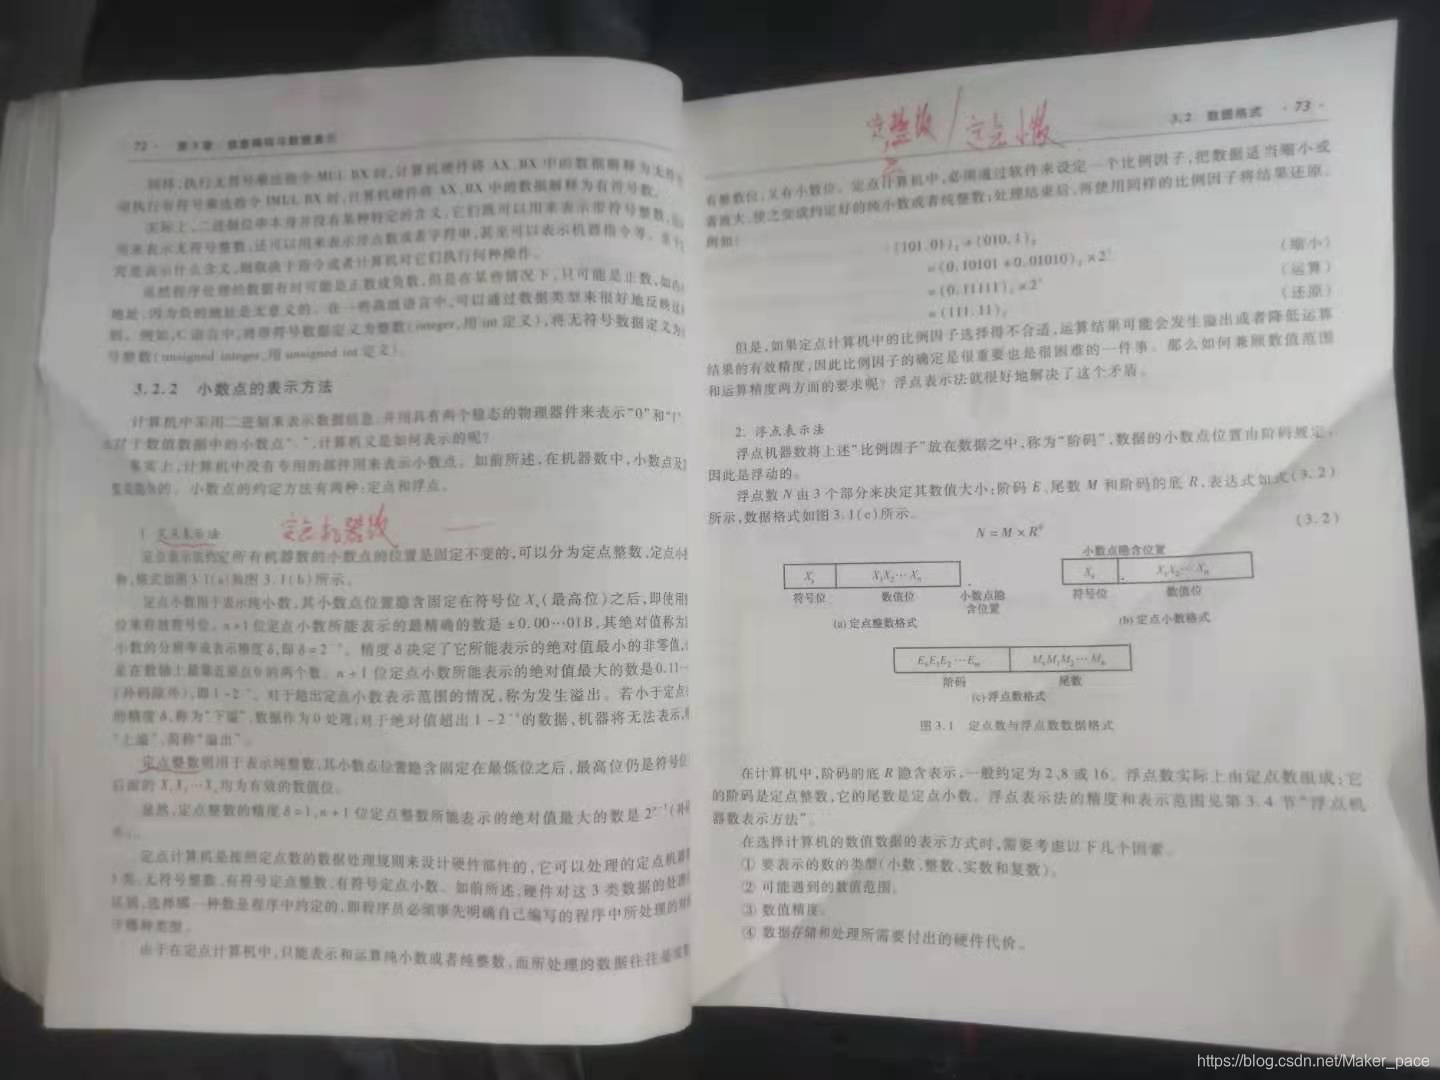 72 · 第3章 信息编码与数据表示
同样,执行无符号乘法指令 MUL BX 时,计算机硬件将 AX、BX 中的数据解释为无符号
执行有符号乘法指令 IMUL BX 时,计算机硬件将 AX、BX 中的数据解释为有符号数。
实际上,二进制位串本身并没有某种特定的含义,它们既可以用来表示带符号整数,
用来表示无符号整数,还可以用来表示浮点数或者字符串,甚至可以表示机器指令等。
究竟表示什么含义,则取决于指令或者计算机对它们执行何种操作。
虽然程序处理的数据有时可能是正数或负数,但是在某些情况下,只可能是正数,如
地址,因为负的地址是无意义的。在一些高级语言中,可以通过数据类型来很好地反映
例如,C 语言中,将带符号数据定义为整数(integer,用 int 定义),将无符号数据定义为
号整数(unsigned integer,用 unsigned int 定义)。
3.2.2 小数点的表示方法
计算机中采用二进制来表示数据信息,并用具有两个稳态的物理器件来表示“0”和“1”
对于数值数据中的小数点“.”,计算机又是如何表示的呢?
事实上,计算机中没有专用的部件用来表示小数点。如前所述,在机器数中,小数点及
的。小数点的约定方法有两种:定点和浮点。
定点机器数
1. 定点表示法
定点表示法约定所有机器数的小数点的位置是固定不变的,可以分为定点整数、定点小
种,格式如图 3.1(a)和图 3.1(b)所示。
定点小数用于表示纯小数,其小数点位置隐含固定在符号位 Xs(最高位)之后,即使用
位来有效符号位。n+1 位定点小数所能表示的最精确的数是 ±0.00…01B,其绝对值称为
小数的分辨率或表示精度 δ,即 δ=2⁻ⁿ。精度 δ 决定了它所能表示的绝对值最小的非零值,
是在数轴上最靠近原点 0 的两个数。n+1 位定点小数所能表示的绝对值最大的数是 0.11…
(补码除外),即 1-2⁻ⁿ。对于超出定点小数表示范围的情况,称为发生溢出。若小于定点
的精度 δ,称为“下溢”,数据作为 0 处理;对于绝对值超出 1-2⁻ⁿ 的数据,机器将无法表示,
“上溢”,简称“溢出”。
定点整数则用于表示纯整数,其小数点位置隐含固定在最低位之后,最高位仍是符号
后面的 X₁X₂…Xₙ均为有效的数值位。
显然,定点整数的精度 δ=1,n+1 位定点整数所能表示的绝对值最大的数是
定点计算机是按照定点数的数据处理规则来设计硬件部件的,它可以处理的定点机器
3 类:无符号整数、有符号定点整数、有符号定点小数。如前所述,硬件对这 3 类数据的处理
区别,选择哪一种数是程序中约定的,即程序员必须事先明确自己编写的程序中所处理的
于哪种类型。
由于在定点计算机中,只能表示和运算纯小数或者纯整数,而所处理的数据往往
定点整数/定点小数
3.2 数据格式 · 73 ·
有整数位,又有小数位。定点计算机中,必须通过软件来设定一个比例因子,把数据适当缩小或
者放大,使之变成约定好的纯小数或者纯整数;处理结束后,再使用同样的比例因子将结果还原。
例如:
(101.01)₂+(010.1)₂
=(0.10101+0.01010)₂×2³ (缩小)
=(0.11111)₂×2³ (运算)
=(111.11)₂ (还原)
但是,如果定点计算机中的比例因子选择得不合适,运算结果可能会发生溢出或者降低运算
结果的有效精度,因此比例因子的确定是很重要也是很困难的一件事。那么如何兼顾数值范围
和运算精度两方面的要求呢?浮点表示法就很好地解决了这个矛盾。
2. 浮点表示法
浮点机器数将上述“比例因子”放在数据之中,称为“阶码”,数据的小数点位置由阶码规定,
因此是浮动的。
浮点数 N 由 3 个部分来决定其数值大小:阶码 E、尾数 M 和阶码的底 R,表达式如式(3.2)
所示,数据格式如图 3.1(c)所示。
N=M×Rᴱ (3.2)
小数点隐含位置
Xs X₁X₂…Xₙ . Xs . X₁X₂…Xₙ
符号位 数值位 小数点隐含位置 符号位 数值位
(a) 定点整数格式 (b) 定点小数格式
EsE₁E₂…Eₘ MsM₁M₂…Mₙ
阶码 尾数
(c) 浮点数格式
图 3.1 定点数与浮点数数据格式
在计算机中,阶码的底 R 隐含表示,一般约定为 2、8 或 16。浮点数实际上由定点数组成:它
的阶码是定点整数,它的尾数是定点小数。浮点表示法的精度和表示范围见第 3.4 节“浮点机
器数表示方法”。
在选择计算机的数值数据的表示方式时,需要考虑以下几个因素。
① 要表示的数的类型(小数、整数、实数和复数)。
② 可能遇到的数值范围。
③ 数值精度。
④ 数据存储和处理所需要付出的硬件代价。
https://blog.csdn.net/Maker_pace